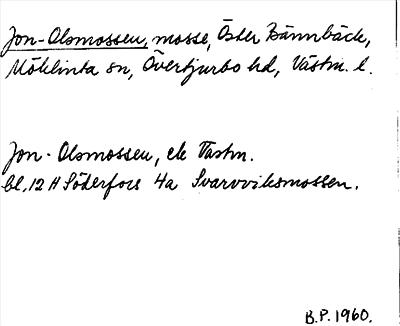 Jon-Olsmossen, mosse, Öster Bännbäck,
Möklinta sn, Övertjurbo hd, Västm. l.
Jon-Olsmossen, ek Västm.
bl. 12 H Söderfors 4a Svarvviksmossen.
B.P. 1960.